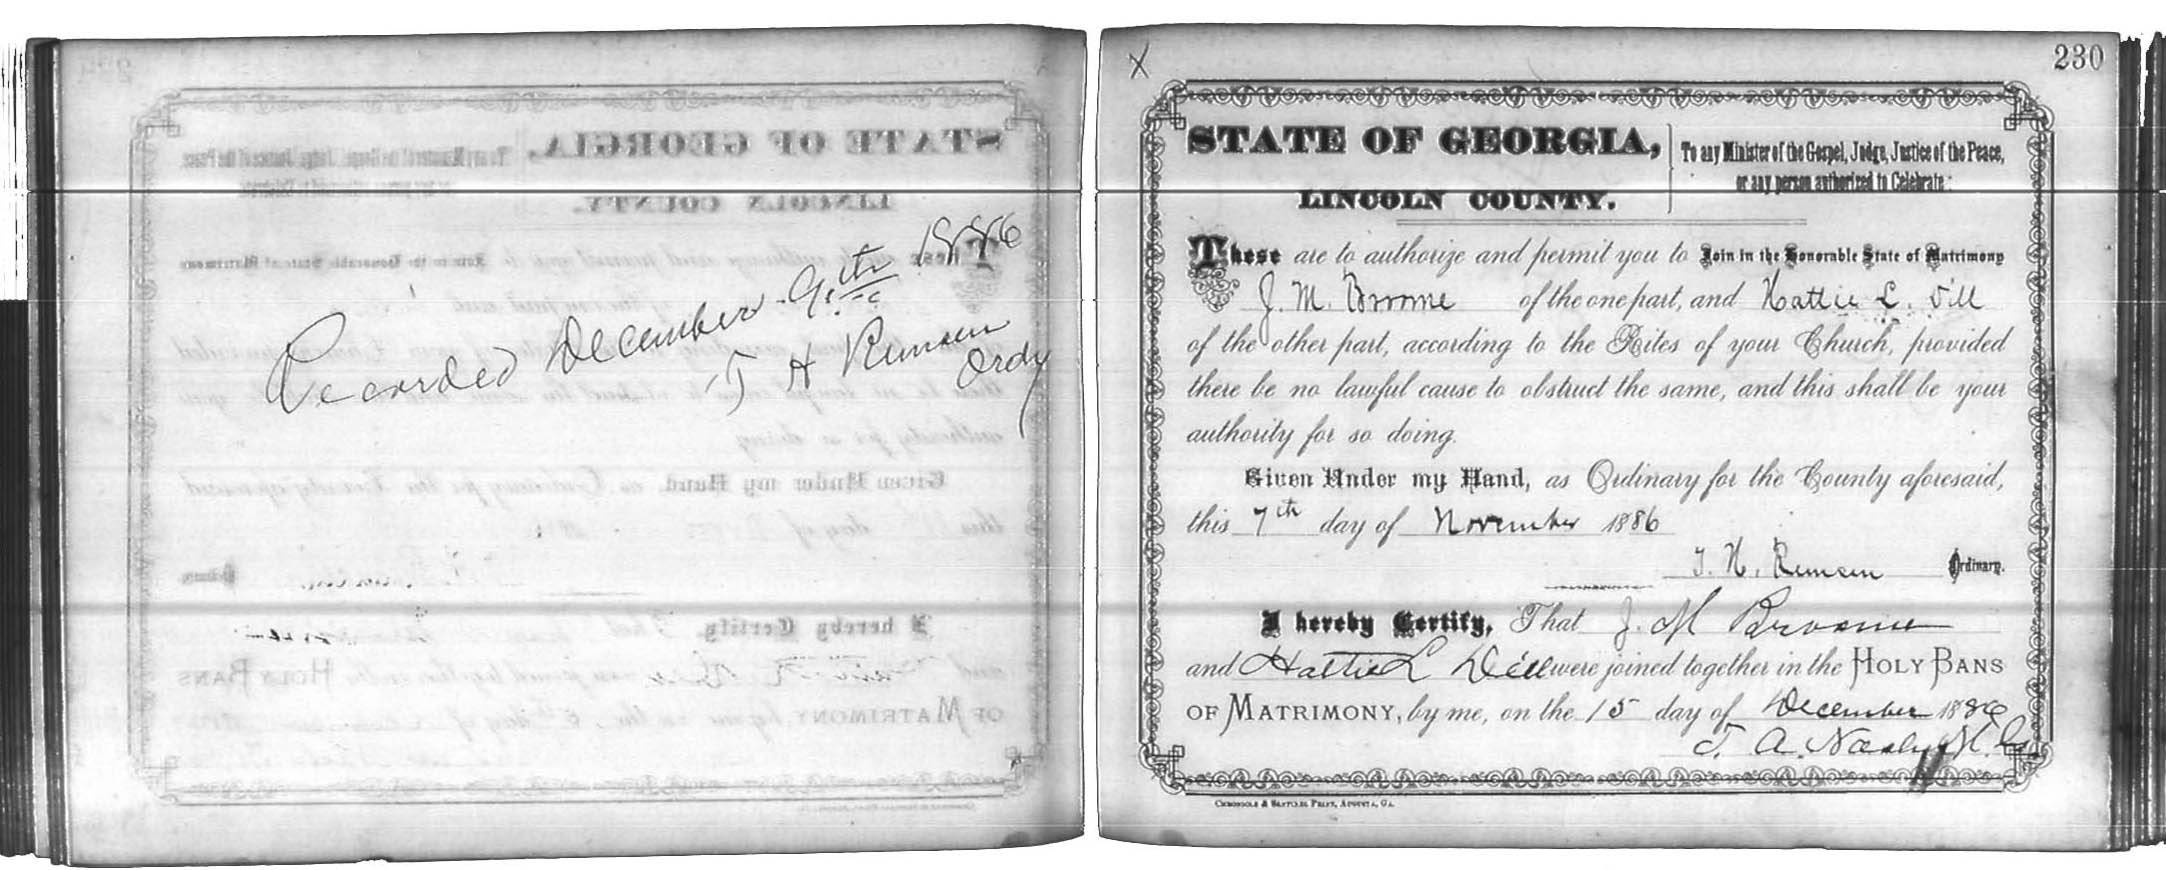 Recorded December 9th 1886
T H Remsen
Ordy
X
230
STATE OF GEORGIA,
LINCOLN COUNTY.
To any Minister of the Gospel, Judge, Justice of the Peace,
or any person authorized to Celebrate:
These are to authorize and permit you to Join in the Honorable State of Matrimony
J. M. Broome of the one part, and Hattie L. Dill
of the other part, according to the Rites of your Church, provided
there be no lawful cause to obstruct the same, and this shall be your
authority for so doing.
Given Under my Hand, as Ordinary for the County aforesaid,
this 7th day of November 1886
T. H. Remsen Ordinary.
I hereby Certify, That J. M Broome
and Hattie L Dill were joined together in the HOLY BANS
OF MATRIMONY, by me, on the 15 day of December 1886
T. A. Nash M. G.
CHRONICLE & SENTINEL PRINT, AUGUSTA, GA.